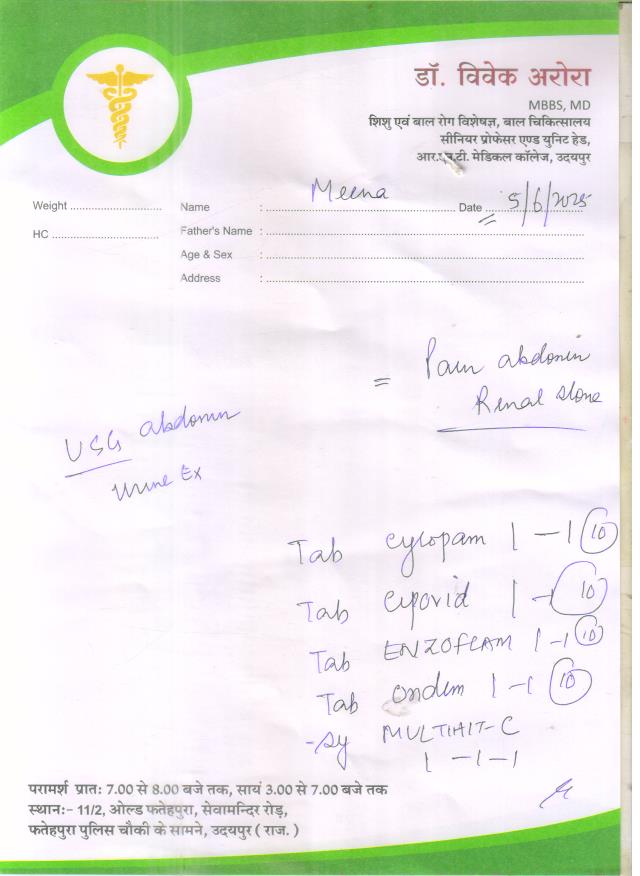 डॉ. विवेक अरोरा
MBBS, MD
शिशु एवं बाल रोग विशेषज्ञ, बाल चिकित्सालय
सीनियर प्रोफेसर एण्ड युनिट हेड,
आर.एन.टी. मेडिकल कॉलेज, उदयपुर
Weight
Name : Meena Date 5/6/2025
HC
Father's Name :
Age & Sex :
Address :
= Pain abdomin
Renal stone
USG abdomin
Urine Ex
Tab cyclopam 1 — 1 10
Tab 1 - 10
Tab ENZOFLAM 1 - 1 10
Tab ondem 1 - 1 10
- Sy
1 - 1 - 1
परामर्श प्रातः 7.00 से 8.00 बजे तक, सायं 3.00 से 7.00 बजे तक
स्थान:- 11/2, ओल्ड फतेहपुरा, सेवामन्दिर रोड़,
फतेहपुरा पुलिस चौकी के सामने, उदयपुर ( राज. )